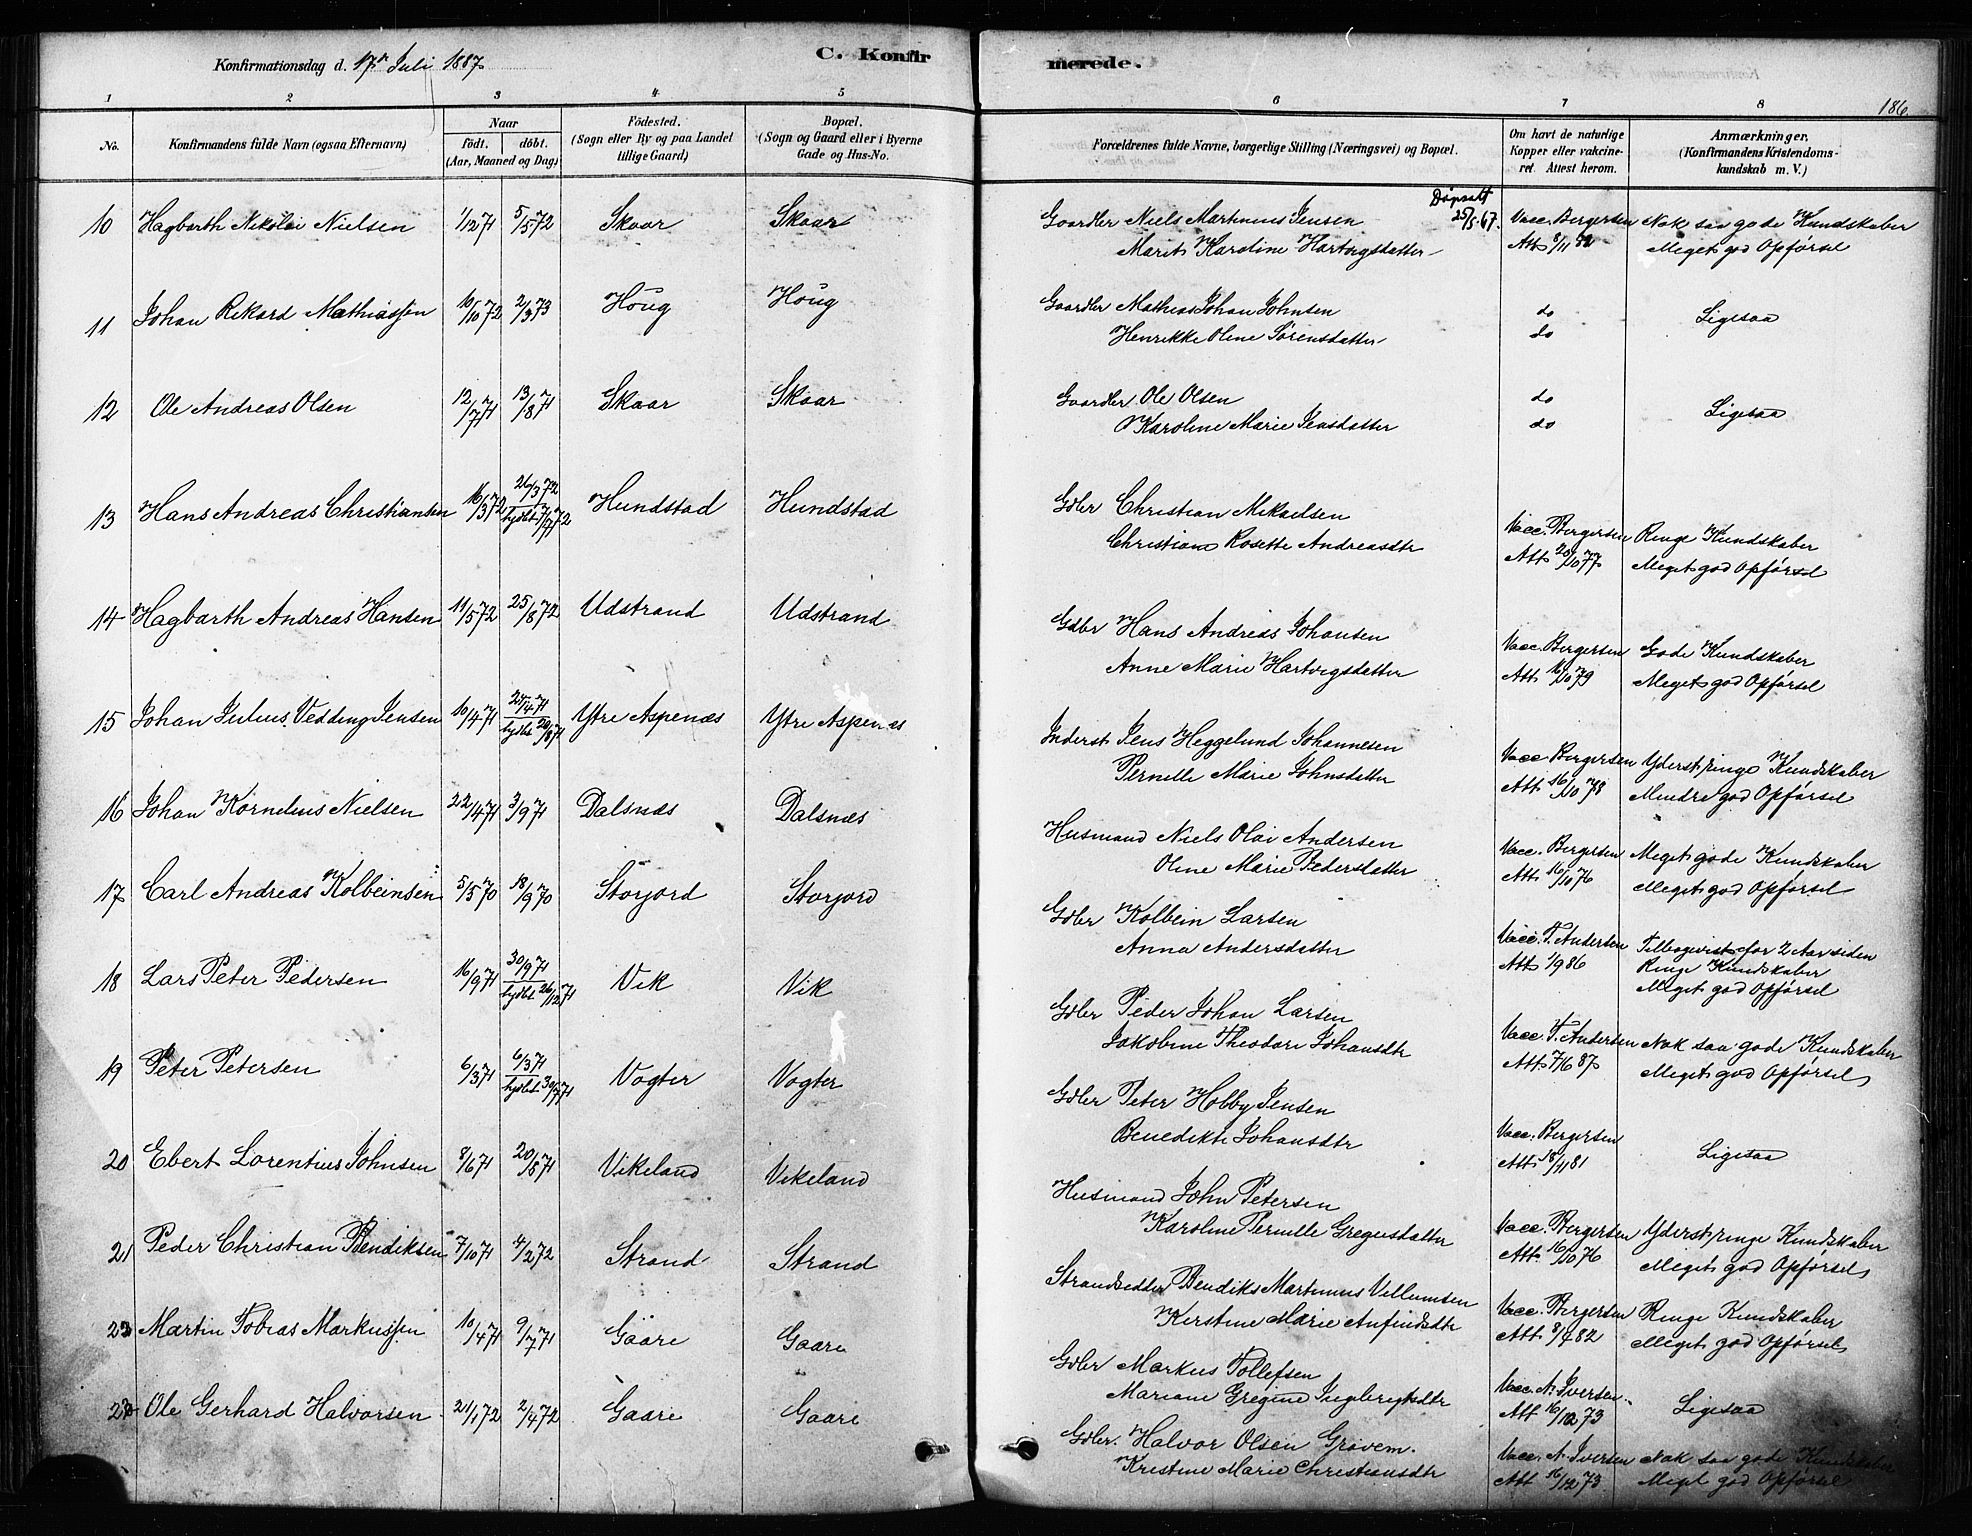 Konfirmationsdag d. 17de Juli 1887.
C. Konfirmerede.
186.
1 2 3 4 5 6 7 8
No.
Konfirmandens fulde Navn (ogsaa Efternavn)
Naar
födt. döbt.
(Aar, Maaned og Dag)
Födested.
(Sogn eller By og paa Landet
tillige Gaard)
Bopæl.
(Sogn og Gaard eller i Byerne
Gade og Hus-No.
Forældrenes fulde Navne, borgerlige Stilling (Næringsvei) og Bopæl.
Om havt de naturlige
Kopper eller vakcine-
ret. Attest herom.
Anmærkninger.
(Konfirmandens Kristendoms-
kundskab m. V.)
10 Hagbarth Nikolai Nielsen 1/12 71 5/5 72 Skaar Skaar Gaardbr Niels Martinius Jensen Döpsatt 25/5.67. Vacc. Bergersen Nok saa gode Kundskaber
Marit Karoline Hartvigsdatter Att. 8/11 82 Meget god Opförsel
11 Johan Rikard Mathiassen 10/10 72 2/3 73 Houg Houg Gaardbr Mathias Johan Johnsen do Ligesaa
Henrikke Oline Sörensdatter do
12 Ole Andreas Olsen 12/7 71 13/8 71 Skaar Skaar Gaardbr Ole Olsen do Ligesaa
Karoline Marie Jensdatter do
13 Hans Andreas Christiansen 16/3 72 26/3 72 hjdbt 7/7 72 Hundstad Hundstad Gdbr Christian Mikaelsen Vacc. Bergersen Ringe Kundskaber
Christiane Rosette Andreasdtr Att 20/10 77 Meget god Opförsel
14 Hagbarth Andreas Hansen 11/5 72 25/8 72 Udstrand Udstrand Gdbr Hans Andreas Johansen Vacc. Bergersen Gode Kundskaber
Anne Marie Hartvigsdatter Att 16/10 79 Meget god Opförsel
15 Johan Julius Vedding Jensen 10/4 71 24/4 71 hjdbt 20/8 71 Ytre Aspenæs Ytre Aspenæs Inderst Jens Heggelund Johannesen Vacc Bergersen Yderst ringe Kundskaber
Pernille Marie Johnsdatter Att 16/10 78 Mindre god Opförsel
16 Johan Kornelius Nielsen 22/4 71 3/9 71 Dalsnæs Dalsnæs Husmand Niels Olai Andersen Vacc. Bergersen Meget gode Kundskaber
Oline Marie Pedersdatter Att 16/10 76 Meget god Opförsel
17 Carl Andreas Kolbeinsen 5/5 70 18/9 70 Storjord Storjord Gdbr Kolbein Larsen Vacc. T. Andersen Tilbagevist for 2 Aar siden
Anna Andersdatter Att 1/9 86 Ringe Kundskaber
Meget god Opförsel
18 Lars Peter Pedersen 16/9 71 30/9 71 hjdbt 26/12 71 Vik Vik Gdbr Peder Johan Larsen Vacc. T. Andersen Nok saa gode Kundskaber
Jakobine Theodore Johansdtr Att 7/6 87 Meget god Opförsel
19 Peter Petersen 6/3 71 6/3 71 hjdbt 30/7 71 Vogter Vogter Gdbr Peter Holby Jensen Vacc. Bergersen Ligesaa
Benedikte Johansdtr Att 18/11 81
20 Ebert Lorentius Johnsen 8/6 71 20/8 71 Vikeland Vikeland Husmand John Petersen Vacc. Bergersen Yderst ringe Kundskaber
Karoline Pernille Gregusdatter Att. 16/10 76 Meget god Opförsel
21 Peder Christian Bendiksen 7/10 71 4/2 72 Strand Strand Strandsidder Bendiks Martinus Villumsen Vacc. Bergersen Ringe Kundskaber
Kerstine Marie Anfindsdtr Att. 8/4 82 Meget god Opförsel
Martin Tobias Markussen 10/4 71 9/7 71 Gaare Gaare Gdbr Markus Tollefsen Vacc. A. Iversen. Ligesaa
Mariane Gregine Ingebrigtsdtr Att 16/12 73
Ole Gerhard Halvorsen 21/1 72 2/4 72 Gaare Gaare Gdbr. Halvor Olsen Grövem. Vacc. A. Iversen Nok saa gode Kundskaber
Kristine Marie Christiansdtr Att 16/12 73 Meget god Opförsel